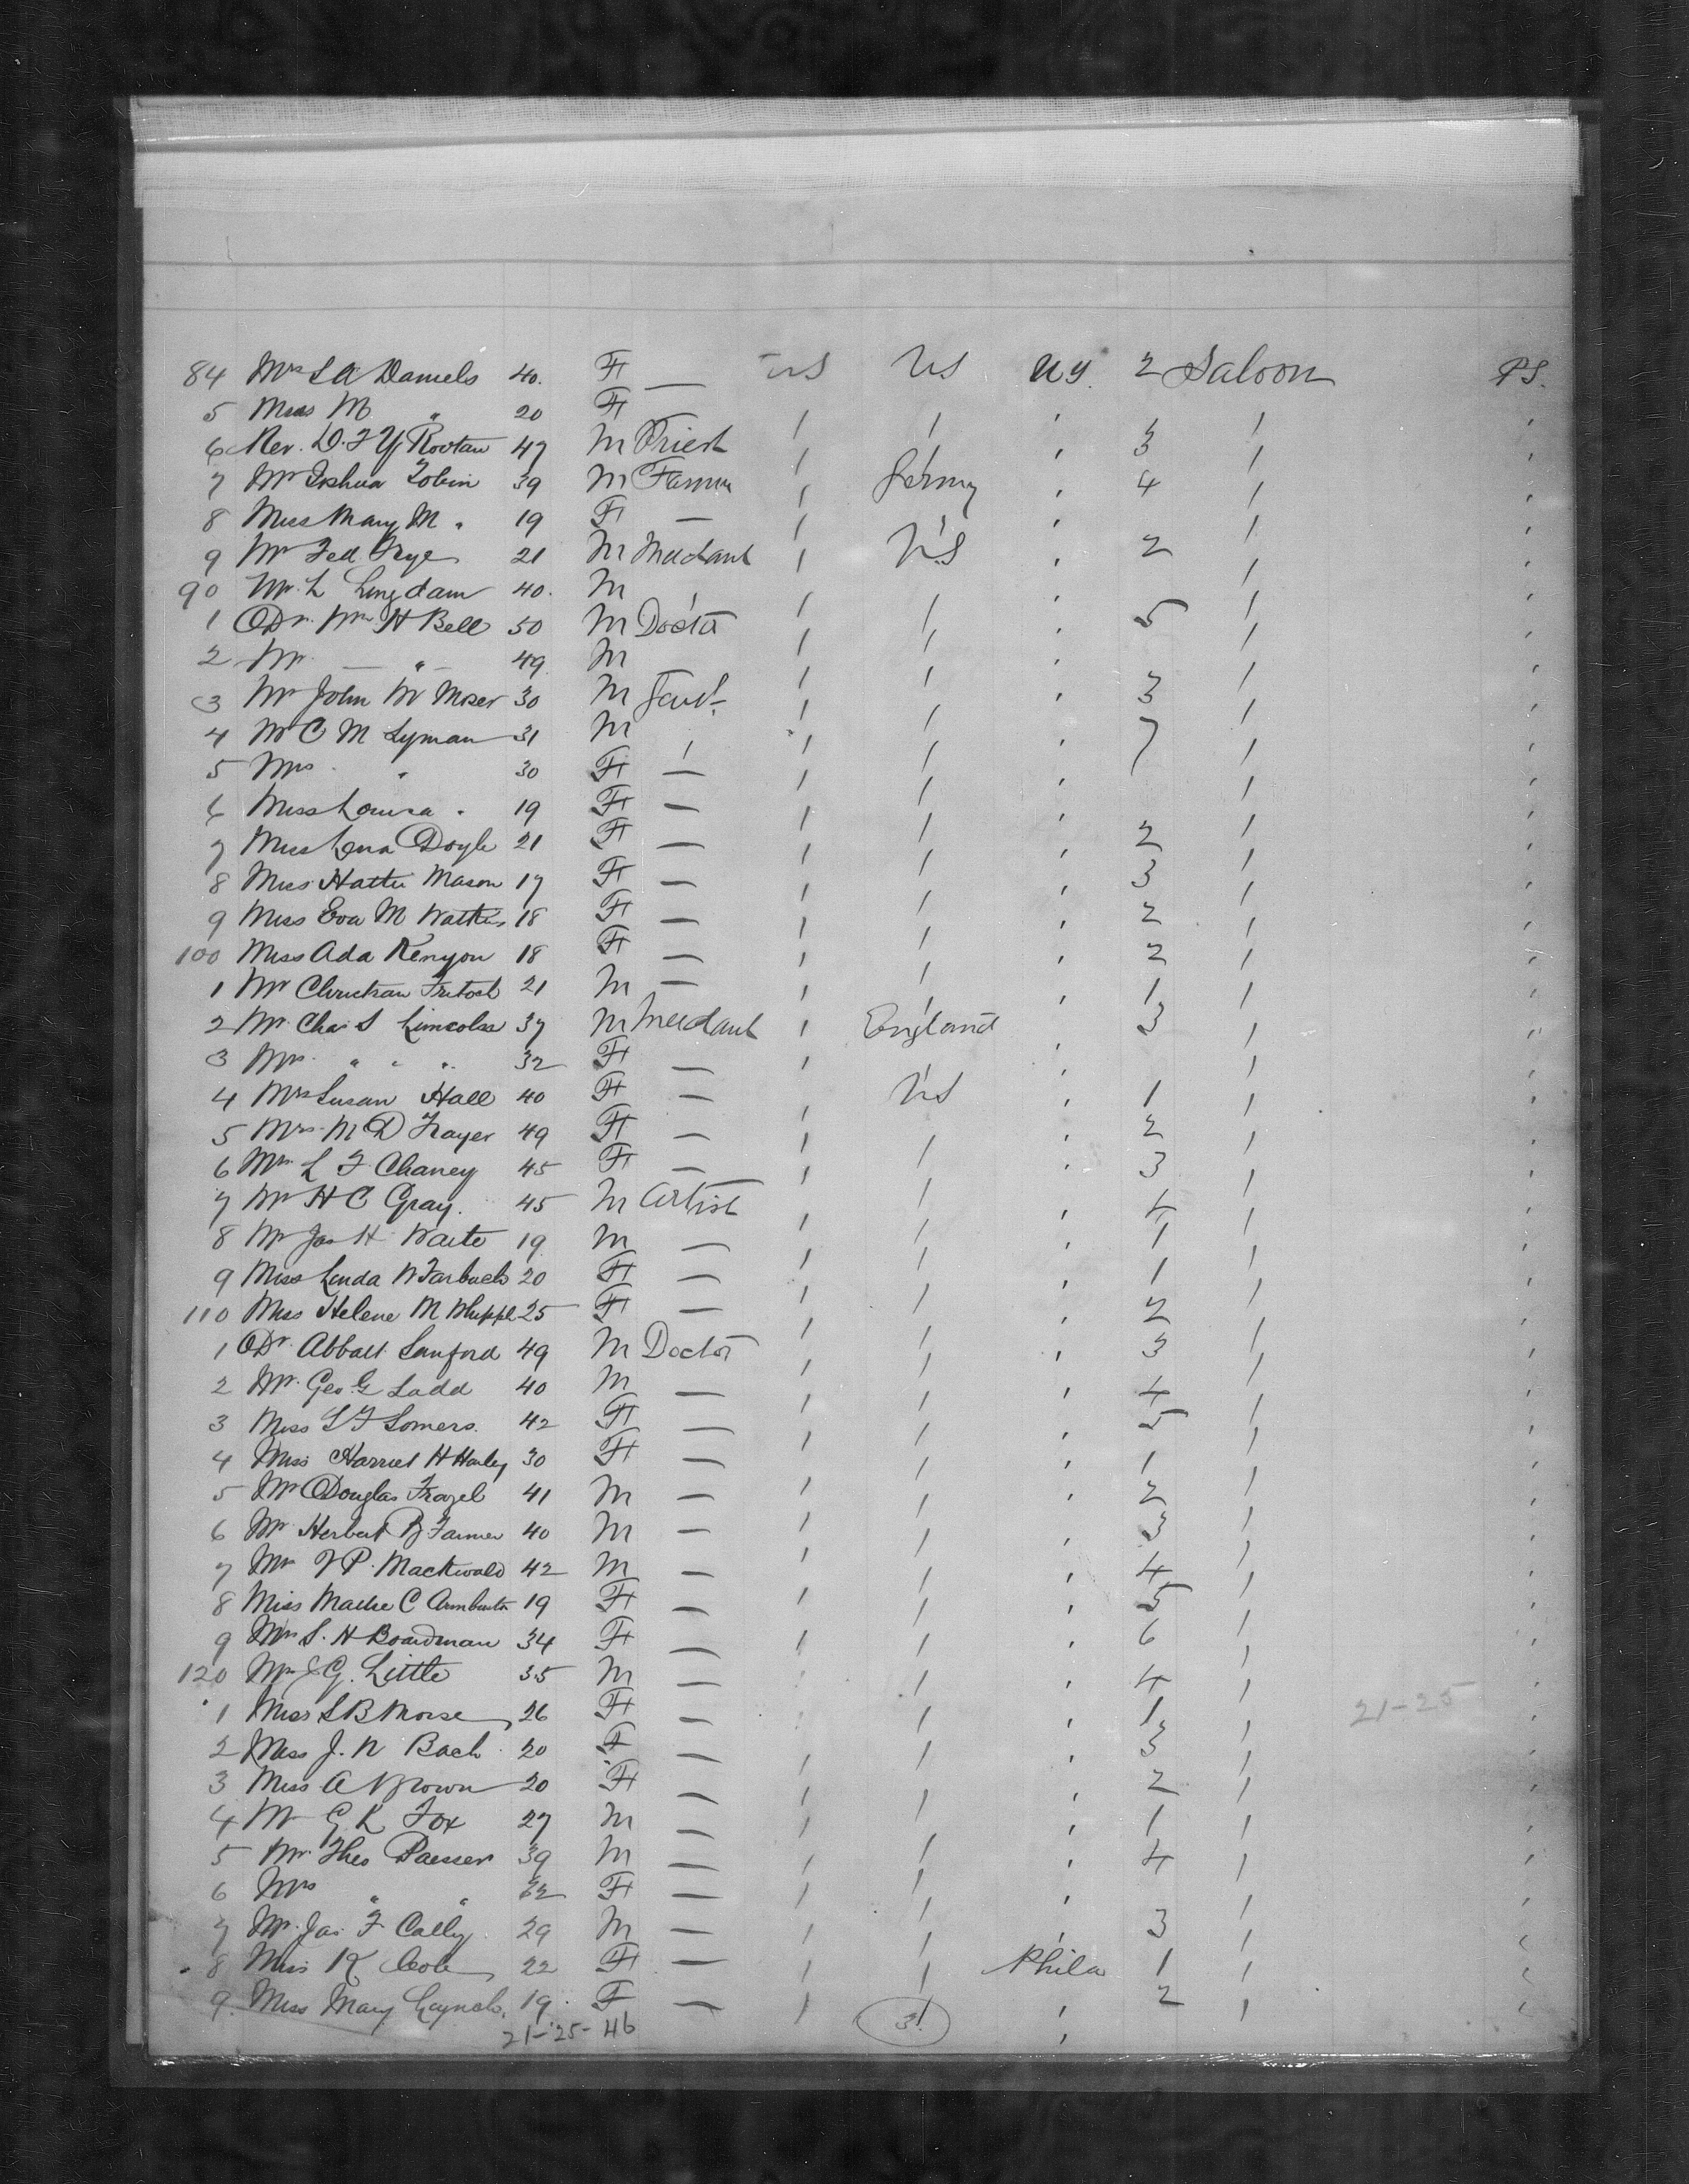 84 Mrs L A Daniels 40. F — US US N Y. 2 Saloon P.S.
5 Miss M " 20 F — / / ' / '
6 Rev. D. F 47 M Priest / / ' 3 / '
7 Mr Joshua Tobin 39 M Farmer / Germy ' 4 / '
8 Miss Mary M " 19 F — / / ' / '
9 Mr Fed. Frye 21 M Merchant / US ' 2 / '
90 Mr. L Lingdam 40. M ' / / ' / '
1 Dr. Wm H Bell 50 M Doctor / / ' 5 / '
2 Mr — " — 49 M / / ' / '
3 Mr John W Moser 30 M Gent. / / ' 3 / '
4 Mr C M Lyman 31 M / / / ' 7 / '
5 Mrs " 30 F — / / ' / '
6 Miss Louisa " 19 F — / / ' / '
7 Miss Lena Doyle 21 F — / / ' 2 / '
8 Miss Hattie Mason 17 F — / / ' 3 / '
9 Miss Eva M Watkins 18 F — / / ' 2 / '
100 Miss Ada Kenyon 18 F — / / ' 2 / '
1 Mr Christian 21 M — / / ' 1 / '
2 Mr. Chas S Lincoln 37 M Merchant / England ' 3 / '
3 Mrs " " " 32 F — / ' / '
4 Mrs Susan Hall 40 F — US ' 1 / '
5 Mrs. M D Frayer 49 F — / / ' 2 / '
6 Mrs L F Chaney 45 F — / / ' 3 / '
7 Mr H C Gray. 45 M Artist / ' 4 / '
8 Mr Jas H Waite 19 M — / / ' 1 / '
9 Miss Linda W Tarbuch 20 F — / / ' 1 / '
110 Miss Helene M Whippl 25 F — / / ' 2 / '
1 Dr. Abbatt Sanford 49 M Doctor / / ' 3 / '
2 Mr. Geo. G Ladd 40 M — / / ' 4 / '
3 Miss S F Somers. 42 F — / / ' 5 / '
4 Miss Harriet H Harley 30 F — / / ' 1 / '
5 Mr Douglas Frazel 41 M — / / ' 2 / '
6 Mr. Herbert B Farmer 40 M — / / ' 3 / '
7 Mr P. Mackwald 42 M — / / ' 4 / '
8 Miss C 19 F — / / ' 5 / '
9 Mrs S. H Boardman 34 F — / / ' 6 / '
120 Mr J G. Little 35 M — / / ' 4 / '
1 Miss S B Morse 26 F — / / ' 1 / 21-25 '
2 Miss J. N Bach 20 F — / / ' 3 / '
3 Miss A Brown 20 F — / / ' 2 / '
4 Mr G. K Fox 27 M — / / ' 1 / '
5 Mr. Theo Paesser 39 M — / / ' 4 / '
6 Mrs " " 32 F — / / ' / '
7 Mr. Jas. F Cally 29 M — / / ' 3 / '
8 Miss K Cole 22 F — / / Phila 1 / '
9. Miss Mary Lynch. 19. F — / / ' 2 / '
21-25-46 3. '